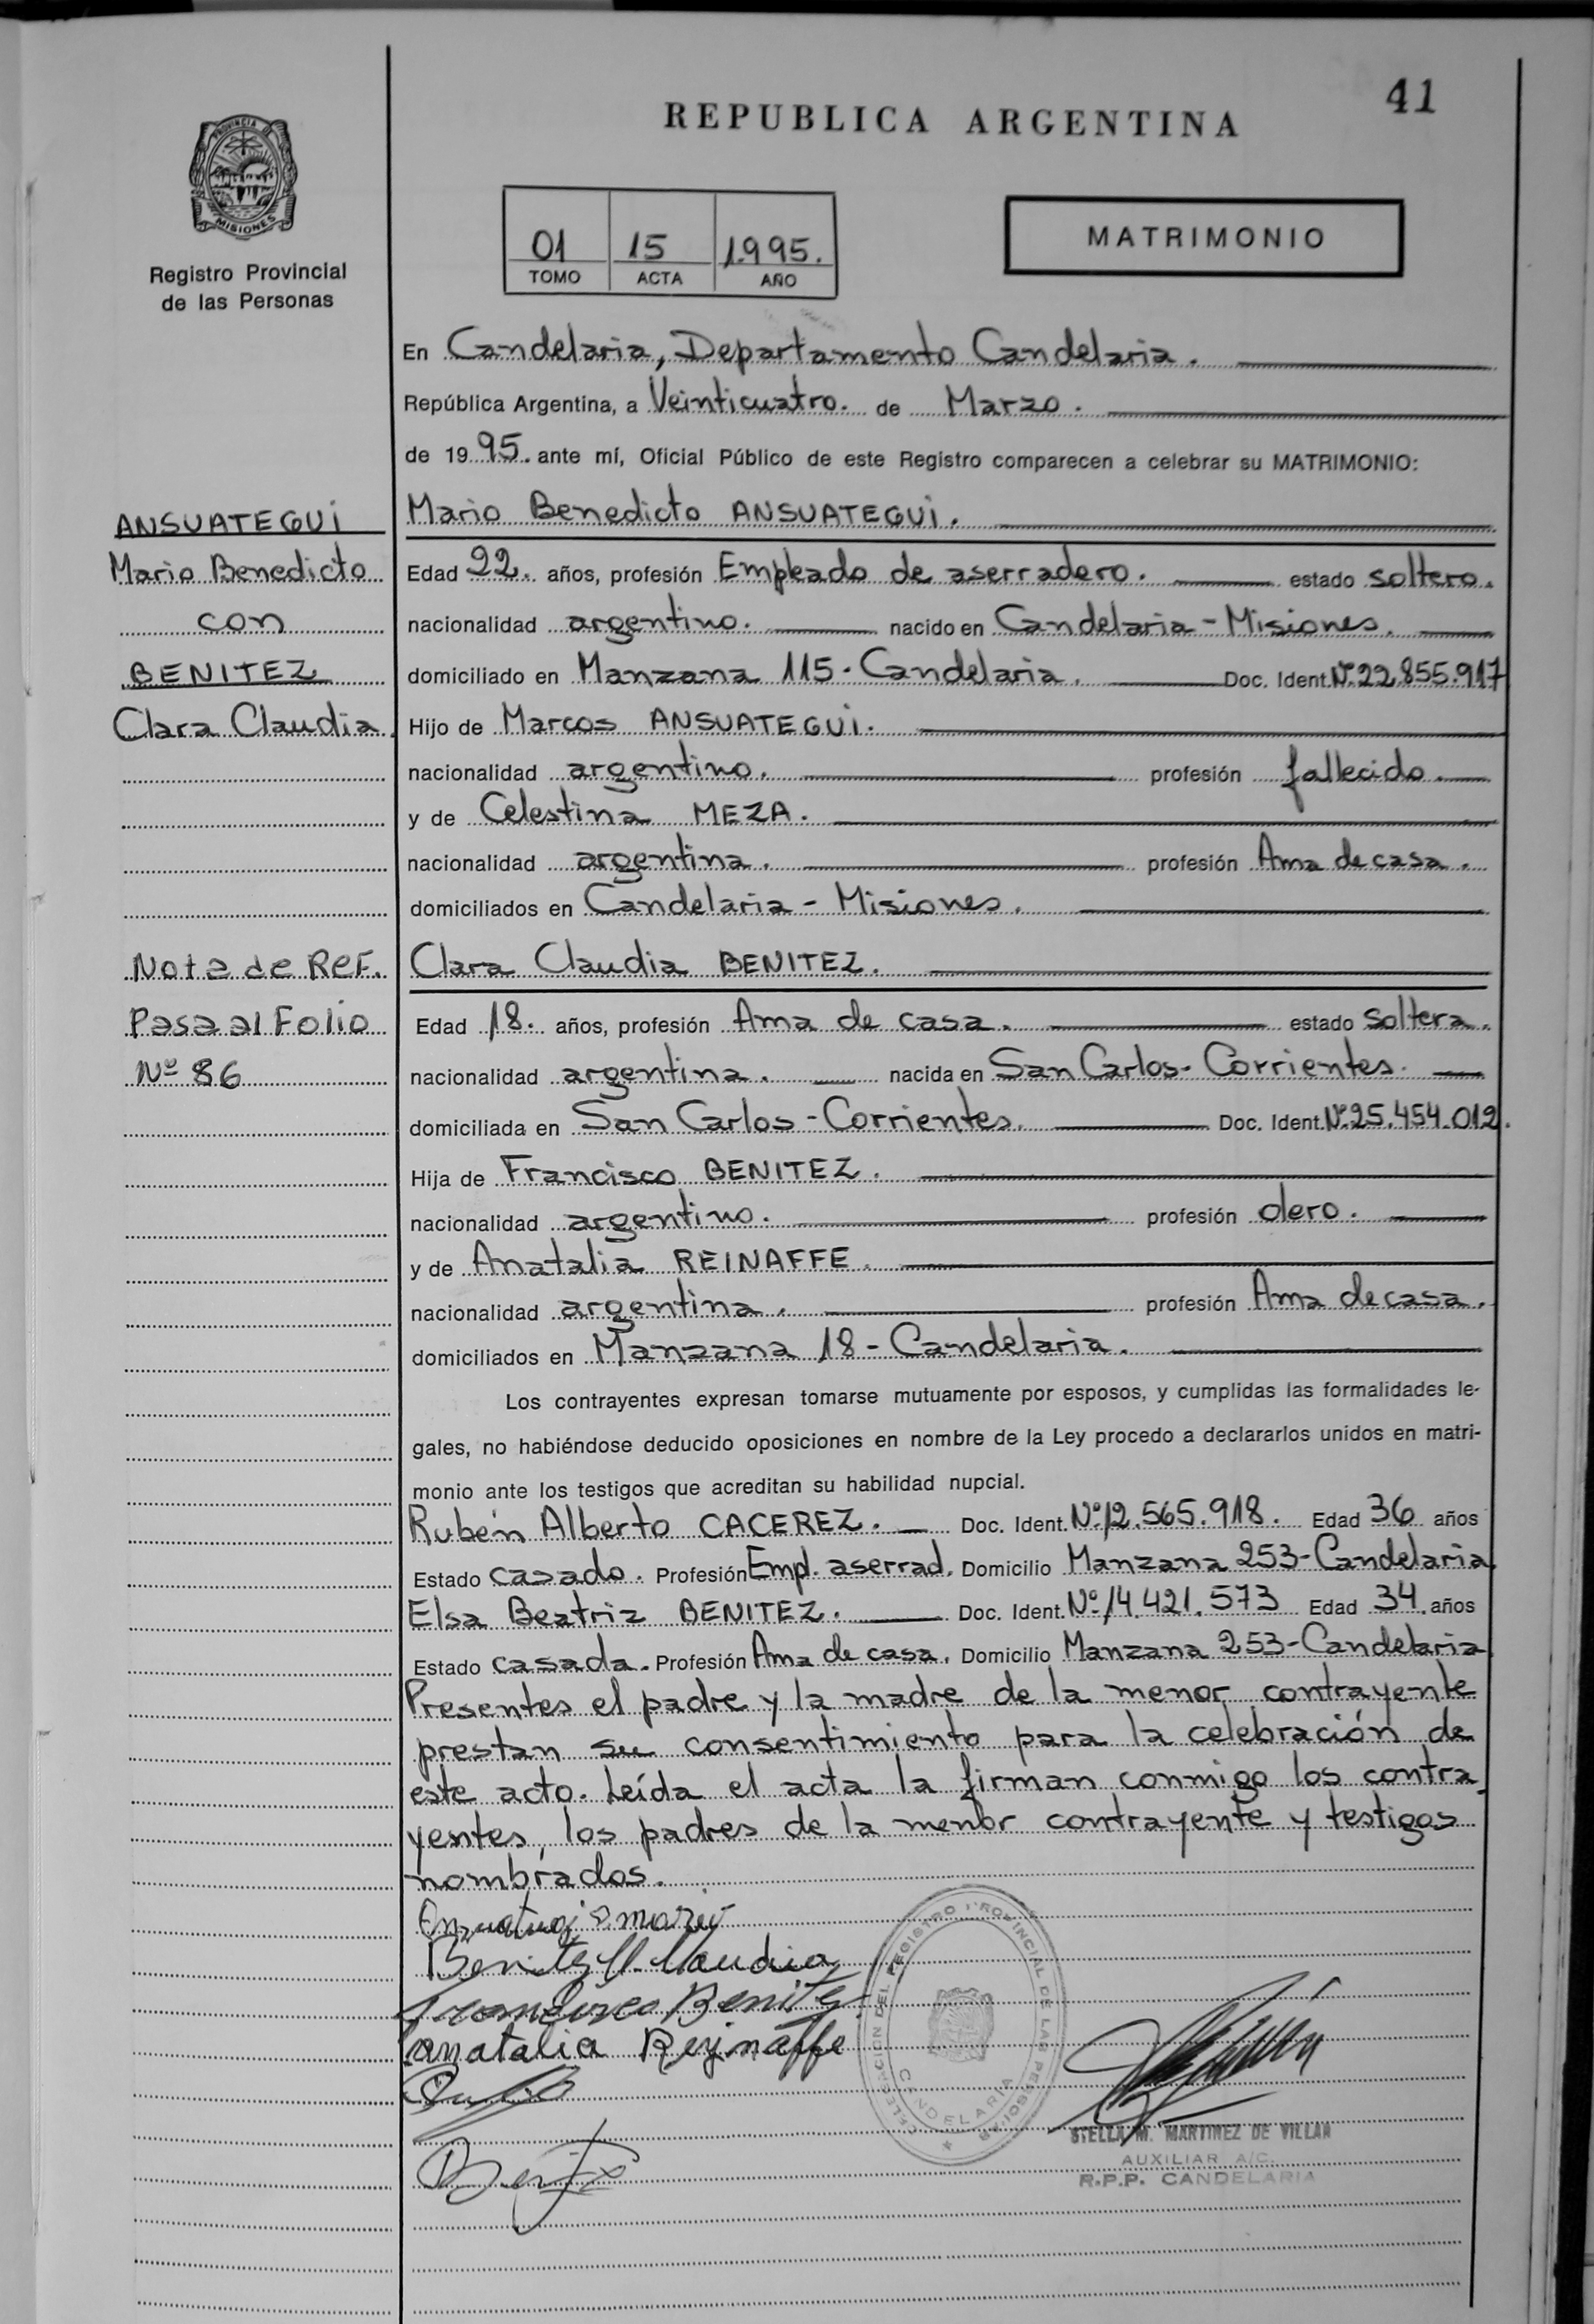 41
REPUBLICA ARGENTINA
PROVINCIA DE
MISIONES
Registro Provincial
de las Personas
01 15 1.995.
TOMO ACTA AÑO
MATRIMONIO
En Candelaria, Departamento Candelaria.
República Argentina, a Veinticuatro. de Marzo.
de 1995. ante mí, Oficial Público de este Registro comparecen a celebrar su MATRIMONIO:
Mario Benedicto ANSUATEGUI.
Edad 22. años, profesión Empleado de aserradero. estado soltero.
nacionalidad argentino. nacido en Candelaria - Misiones.
domiciliado en Manzana 115 - Candelaria. Doc. Ident. Nº 22.855.917
Hijo de Marcos ANSUATEGUI.
nacionalidad argentino. profesión fallecido.
y de Celestina MEZA.
nacionalidad argentina. profesión Ama de casa.
domiciliados en Candelaria - Misiones.
Clara Claudia BENITEZ.
Edad 18. años, profesión Ama de casa. estado soltera.
nacionalidad argentina. nacida en San Carlos - Corrientes.
domiciliada en San Carlos - Corrientes. Doc. Ident. Nº 25.454.012.
Hija de Francisco BENITEZ.
nacionalidad argentino. profesión olero.
y de Anatalia REINAFFE.
nacionalidad argentina. profesión Ama de casa.
domiciliados en Manzana 18 - Candelaria.
Los contrayentes expresan tomarse mutuamente por esposos, y cumplidas las formalidades le-
gales, no habiéndose deducido oposiciones en nombre de la Ley procedo a declararlos unidos en matri-
monio ante los testigos que acreditan su habilidad nupcial.
Rubén Alberto CACEREZ. Doc. Ident. Nº 12.565.918. Edad 36 años
Estado casado. Profesión Empl. aserrad. Domicilio Manzana 253 - Candelaria.
Elsa Beatriz BENITEZ. Doc. Ident. Nº 14.421.573 Edad 34. años
Estado casada. Profesión Ama de casa. Domicilio Manzana 253 - Candelaria
Presentes el padre y la madre de la menor contrayente
prestan su consentimiento para la celebración de
este acto. Leída el acta la firman conmigo los contra-
yentes, los padres de la menor contrayente y testigos
nombrados.
ANSUATEGUI
Mario Benedicto
con
BENITEZ
Clara Claudia.
Nota de Ref.
Pasa al Folio
Nº 86
Benitez Claudia
Francisco Benitez
anatalia Reynaffe
DELEGACION DEL REGISTRO PROVINCIAL DE LAS PERSONAS
CANDELARIA
STELLA M. MARTINEZ DE VILLAN
AUXILIAR A/C.
R.P.P. CANDELARIA